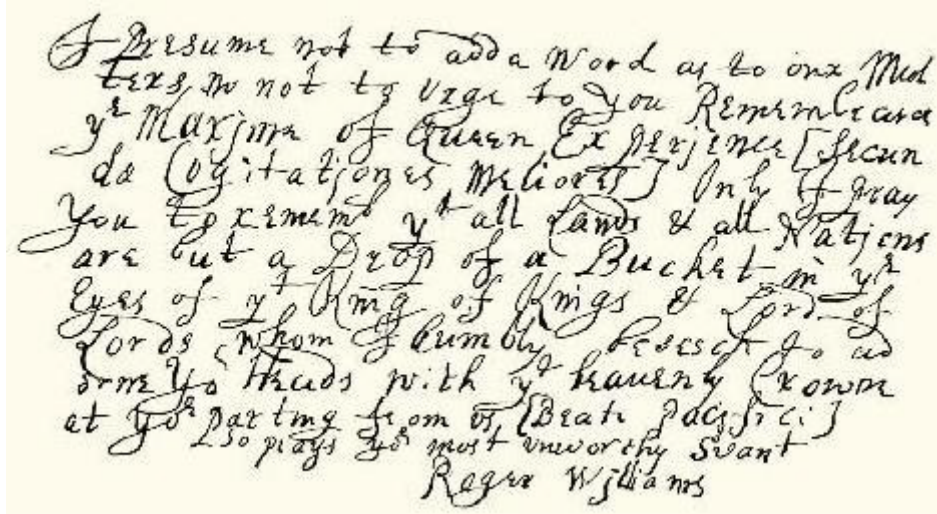 I Presume not to add a Word as to our Mat
ters no not to Urge to you Remembrance
yᵉ Maxjme of Queen Experjence [Secun
dæ Cogitatjones Meliores] Only I pray
You to rememb yᵗ all Lands & all Natjons
are but a Drop of a Bucket in yᵉ
Eyes of yᵗ King of Kings & Lord of
Lords whom I humbly beseech to ad
orne Yoʳ Heads with yᵗ heauenly Crowne
at yoʳ parting from vs [Beati pacifici]
so prays yoʳ most vnworthy Svant
Roger Wjlliams